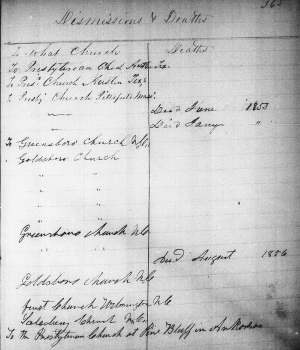 363
Dismissions & Deaths
To What Church Deaths
To Presbyterian Chch
To Pres. Church Austin Tex
To Presby. Church Mass.
Died June 1853
Died Jany "
To Greensboro Church N.C.
" Goldsboro Church
" "
" "
" "
" "
Greensboro church N.C.
Died August 1856
Goldsboro church N.C.
first Church Wilmington N.C.
Church N.C.
To the Presbyterian Church at Pine Bluff in Arkansas